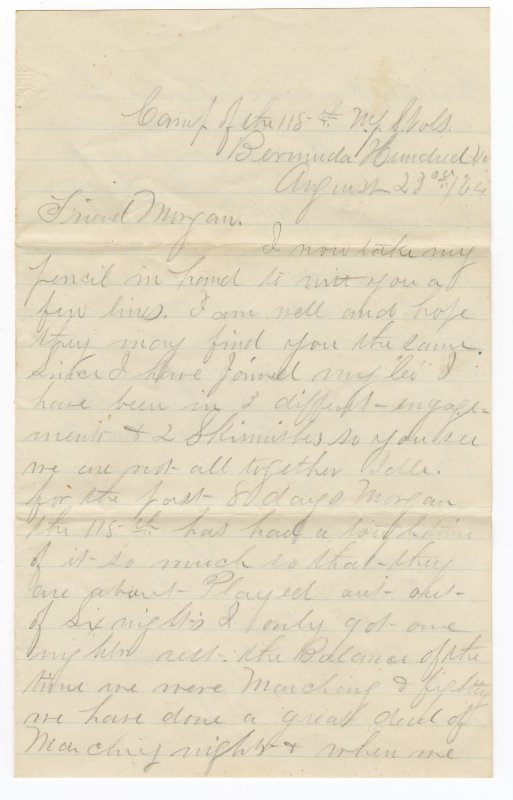 Camp of the 115th N.Y.S. Vols.
Bermuda Hundred Va
August 23rd/64
Friend Morgan.
I now take my
pencil in hand to writ you a
few lines. I am well and hope
they may find you the same.
Since I have Joined my Co I
have been in 3 different engage-
ments & 2 Skimishes so you see
we are not all together Idle.
for the past 8 days Morgan
the 115th has had a tough time
of it so much so that they
are about Played out out
of six nights I only got one
nights rest. the Balance of the
time we were Marching & fighting
we have done a great deal of
Marching nights & when we